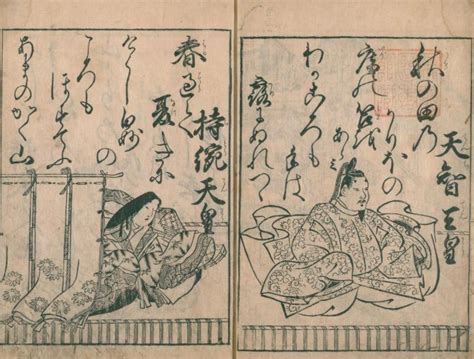 天智天皇
秋の田乃
かりほの
庵の苫を
あらみ
わかころも
手は
露にぬれつゝ
持統天皇
春過て
夏きに
けらし白妙
の
ころも
ほすてふ
あまのかく山